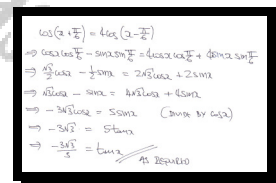 cos(x+π/6) = 4cos(x-π/6)
⇒ cosx cosπ/6 - sinx sinπ/6 = 4cosx cosπ/6 + 4sinx sinπ/6
⇒ √3/2 cosx - 1/2 sinx = 2√3 cosx + 2sinx
⇒ √3 cosx - sinx = 4√3 cosx + 4sinx
⇒ -3√3 cosx = 5sinx (DIVIDE BY cosx)
⇒ -3√3 = 5tanx
⇒ -3√3/5 = tanx
AS REQUIRED